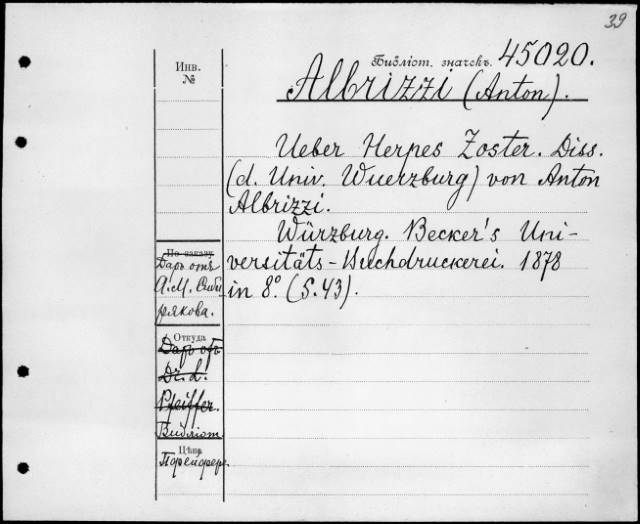 39
Библіот. значекъ. 45020.
Albrizzi (Anton).
Инв.
№
Ueber Herpes Zoster. Diss.
(d. Univ. Wuerzburg) von Anton
Albrizzi.
Würzburg. Becker's Uni-
versitäts-Buchdruckerei. 1878
in 8º. (S. 43).
По заказу
Даръ отъ
А. М. Сиби
рякова.
Откуда
Даръ отъ
Dr. d.
Pfeiffer.
Библіот.
Цѣна
Пфейфер.